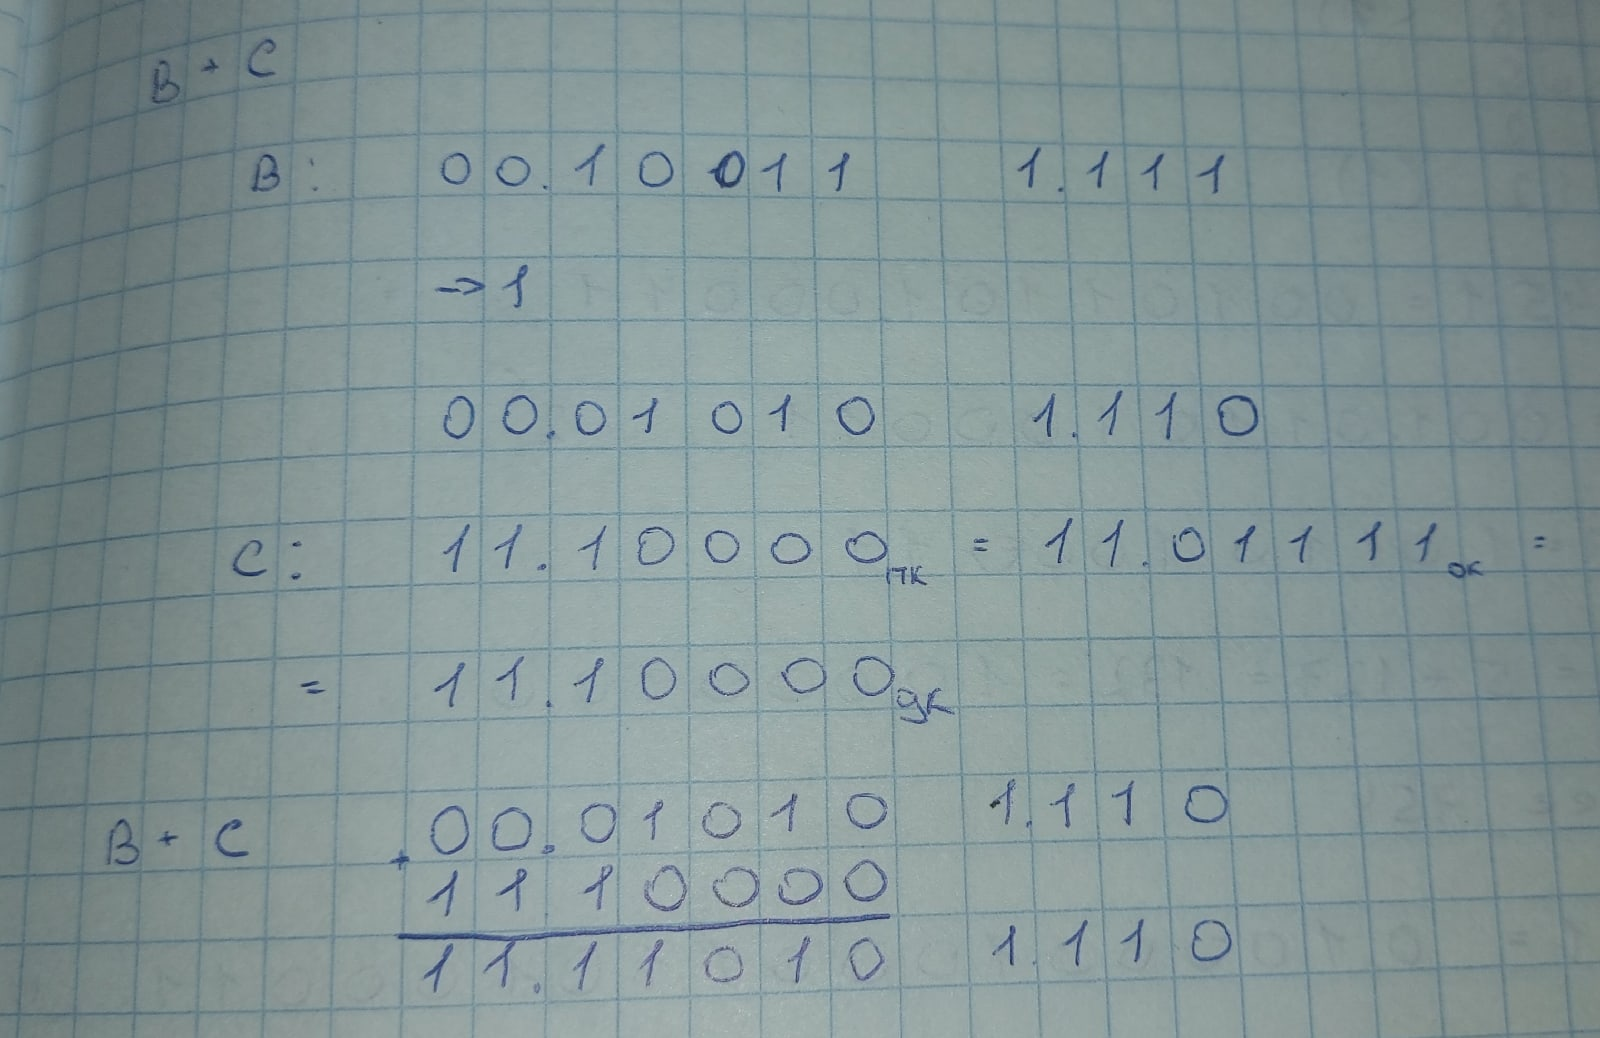 B + C
B : 00.10011 1.111
→ 1
00.01010 1.110
C : 11.10000пк = 11.01111ок =
= 11.10000дк
B + C + 00.01010 1.110
1110000
11.11010 1.110